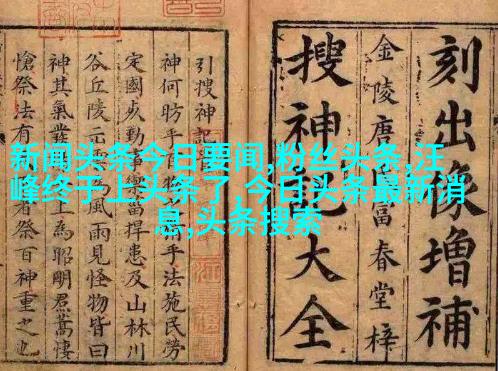 新闻头条今日要闻,粉丝头条,汪
峰终于上头条了 今日头条最新消
息,头条搜索
刻出像增補
金陵唐氏富春堂梓
搜神記大全
引搜神記
神何昉乎手法施民勞
定國以勤事禦菑捍患及山林川
谷丘陵雲為風雨見怪物皆曰
神其氣發上為昭明焄蒿悽
愴祭法有者祭百神重之也